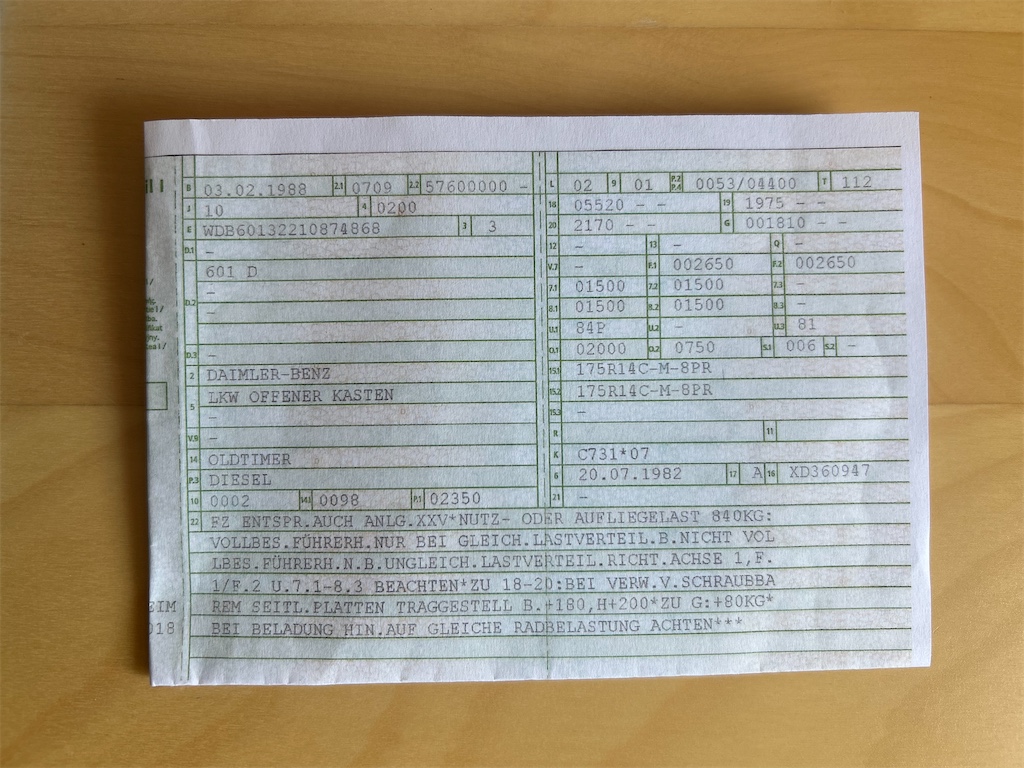 B 03.02.1988 2.1 0709 2.2 57600000 -
J 10 4 0200
E WDB60132210874868 3 3
D.1 -
601 D
-
D.2 -
D.3 -
2 DAIMLER-BENZ
LKW OFFENER KASTEN
5 -
V.9 -
14 OLDTIMER
P.3 DIESEL
10 0002 14.1 0098 P.1 02350
L 02 9 01 P.2 P.4 0053/04400 T 112
18 05520 - - 19 1975 - -
20 2170 - - G 001810 - -
12 - 13 - Q -
V.7 - F.1 002650 F.2 002650
7.1 01500 7.2 01500 7.3 -
8.1 01500 8.2 01500 8.3 -
U.1 84P U.2 - U.3 81
O.1 02000 O.2 0750 S.1 006 S.2 -
15.1 175R14C-M-8PR
15.2 175R14C-M-8PR
15.3 -
R 11
K C731*07
6 20.07.1982 17 A 16 XD360947
21 -
22 FZ ENTSPR.AUCH ANLG.XXV*NUTZ- ODER AUFLIEGELAST 840KG:
VOLLBES.FÜHRERH.NUR BEI GLEICH.LASTVERTEIL.B.NICHT VOL
LBES.FÜHRERH.N.B.UNGLEICH.LASTVERTEIL.RICHT.ACHSE 1,F.
1/F.2 U.7.1-8.3 BEACHTEN*ZU 18-20:BEI VERW.V.SCHRAUBBA
REM SEITL.PLATTEN TRAGGESTELL B.+180,H+200*ZU G:+80KG*
BEI BELADUNG HIN.AUF GLEICHE RADBELASTUNG ACHTEN***
EIM
018